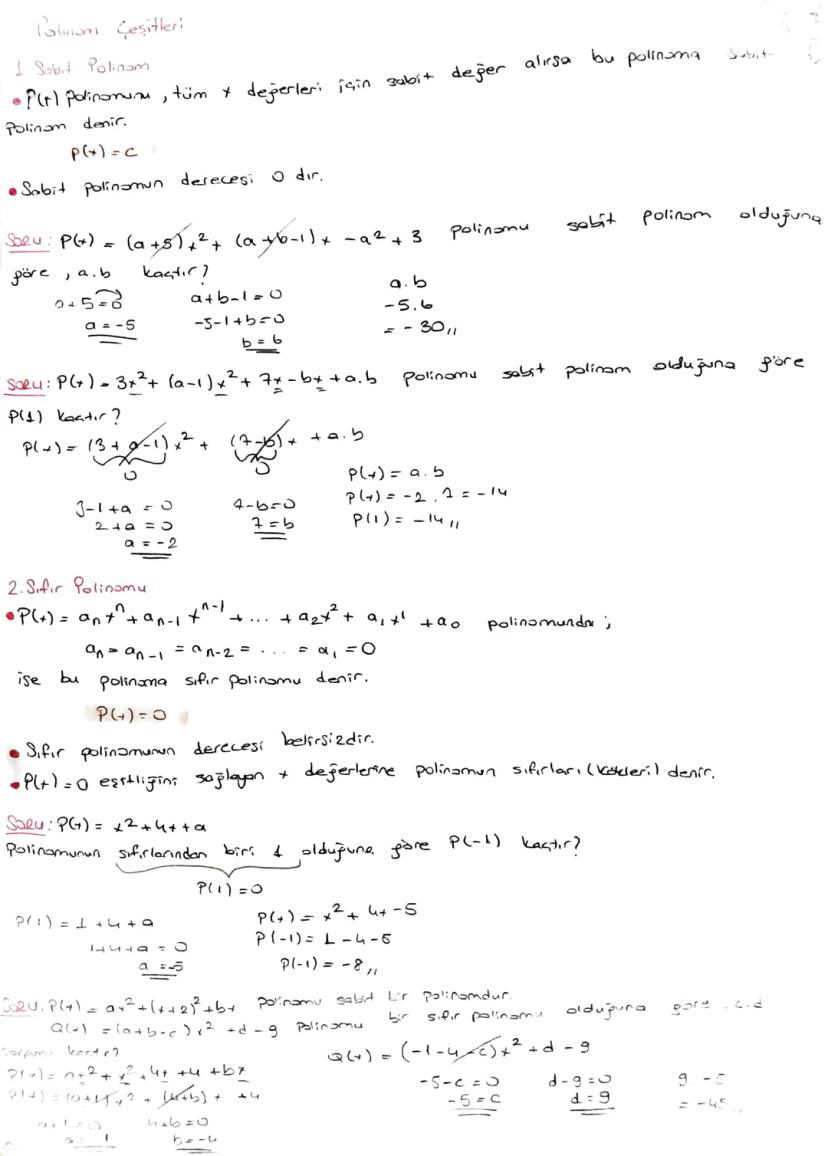 Polinom Çeşitleri
1. Sabit Polinom
• P(x) polinomunu, tüm x değerleri için sabit değer alırsa bu polinoma sabit
polinom denir.
P(x) = c
• Sabit polinomun derecesi 0 dır.
Soru: P(x) = (a+5)x² + (a+b-1)x - a² + 3 polinomu sabit polinom olduğuna
göre, a.b kaçtır?
a.b
a+5=0 a+b-1=0 -5.6
a=-5 -5-1+b=0 = -30,,
b=6
Soru: P(x) = 3x² + (a-1)x² + 7x - bx + a.b polinomu sabit polinom olduğuna göre
P(1) kaçtır?
P(x) = (3+a-1)x² + (7-b)x + a.b
0 0
P(x) = a.b
3-1+a=0 7-b=0 P(x) = -2.7 = -14
2+a=0 7=b P(1) = -14,,
a=-2
2. Sıfır Polinomu
• P(x) = aₙxⁿ + aₙ₋₁xⁿ⁻¹ + ... + a₂x² + a₁x¹ + a₀ polinomunda;
aₙ = aₙ₋₁ = aₙ₋₂ = ... = a₁ = 0
ise bu polinoma sıfır polinomu denir.
P(x) = 0
• Sıfır polinomunun derecesi belirsizdir.
• P(x) = 0 eşitliğini sağlayan x değerlerine polinomun sıfırları (kökleri) denir.
Soru: P(x) = x² + 4x + a
Polinomunun sıfırlarından biri 1 olduğuna göre P(-1) kaçtır?
P(1) = 0
P(1) = 1+4+a P(x) = x² + 4x - 5
1+4+a=0 P(-1) = 1-4-5
a=-5 P(-1) = -8,,
Soru: P(x) = ax² + (x+2)² + bx Polinomu sabit bir polinomdur.
Q(x) = (a+b-c)x² + d - 9 polinomu bir sıfır polinomu olduğuna göre, c.d
kaçtır?
P(x) = ax² + x² + 4x + 4 + bx Q(x) = (-1-4-c)x² + d - 9
P(x) = (a+1)x² + (4+b)x + 4 -5-c=0 d-9=0 9.-5
a+1=0 4+b=0 -5=c d=9 = -45,,
a=-1 b=-4